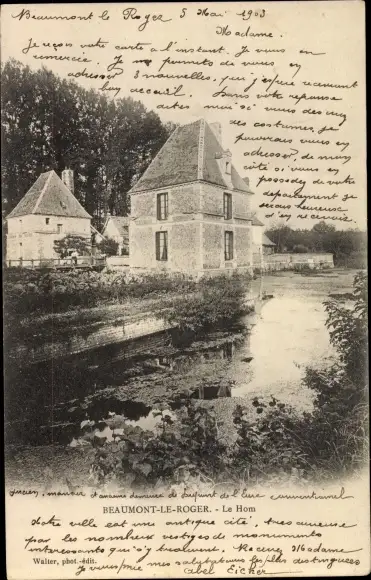 Beaumont le Roger 5 Mai 1903
Madame.
Je reçois votre carte à l'instant. Je vous en
remercie. Je me permets de vous en
adresser 3 nouvelles, qui j'espère recevront
bon accueil. Dans votre réponse
dites moi si vous
des costumes, je
pourrais vous en
adresser, de mon
côté si vous en
possédez de votre
département je
serais heureuse
d'en recevoir
Ancien manoir et ancienne demeure de l'Eure conventionnel
BEAUMONT-LE-ROGER. - Le Hom
Notre ville est une antique cité, très curieuse
par les nombreux vestiges de monuments
intéressants qui s'y trouvent. Recevez Madame
Walter, phot.-édit.
Je vous prie mes salutations les plus distinguées
Abel Eicher